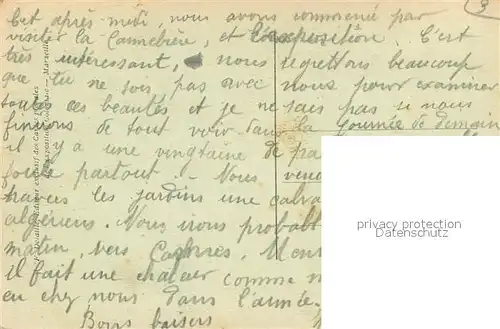 Cet après-midi, nous avons commencé par
visiter la Cannebière, et l'exposition. C'est
très intéressant, nous regrettons beaucoup
que tu ne sois pas avec nous pour examiner
toutes ces beautés et je ne sais pas si nous
finirons de tout voir dans la journée de demain
il y a une vingtaine de
foule partout. Nous
travers les jardins une
algériens. Nous irons probabl
matin, vers
il fait une chaleur comme
eu chez nous dans l'année.
Bons baisers
3
privacy protection
Datenschutz